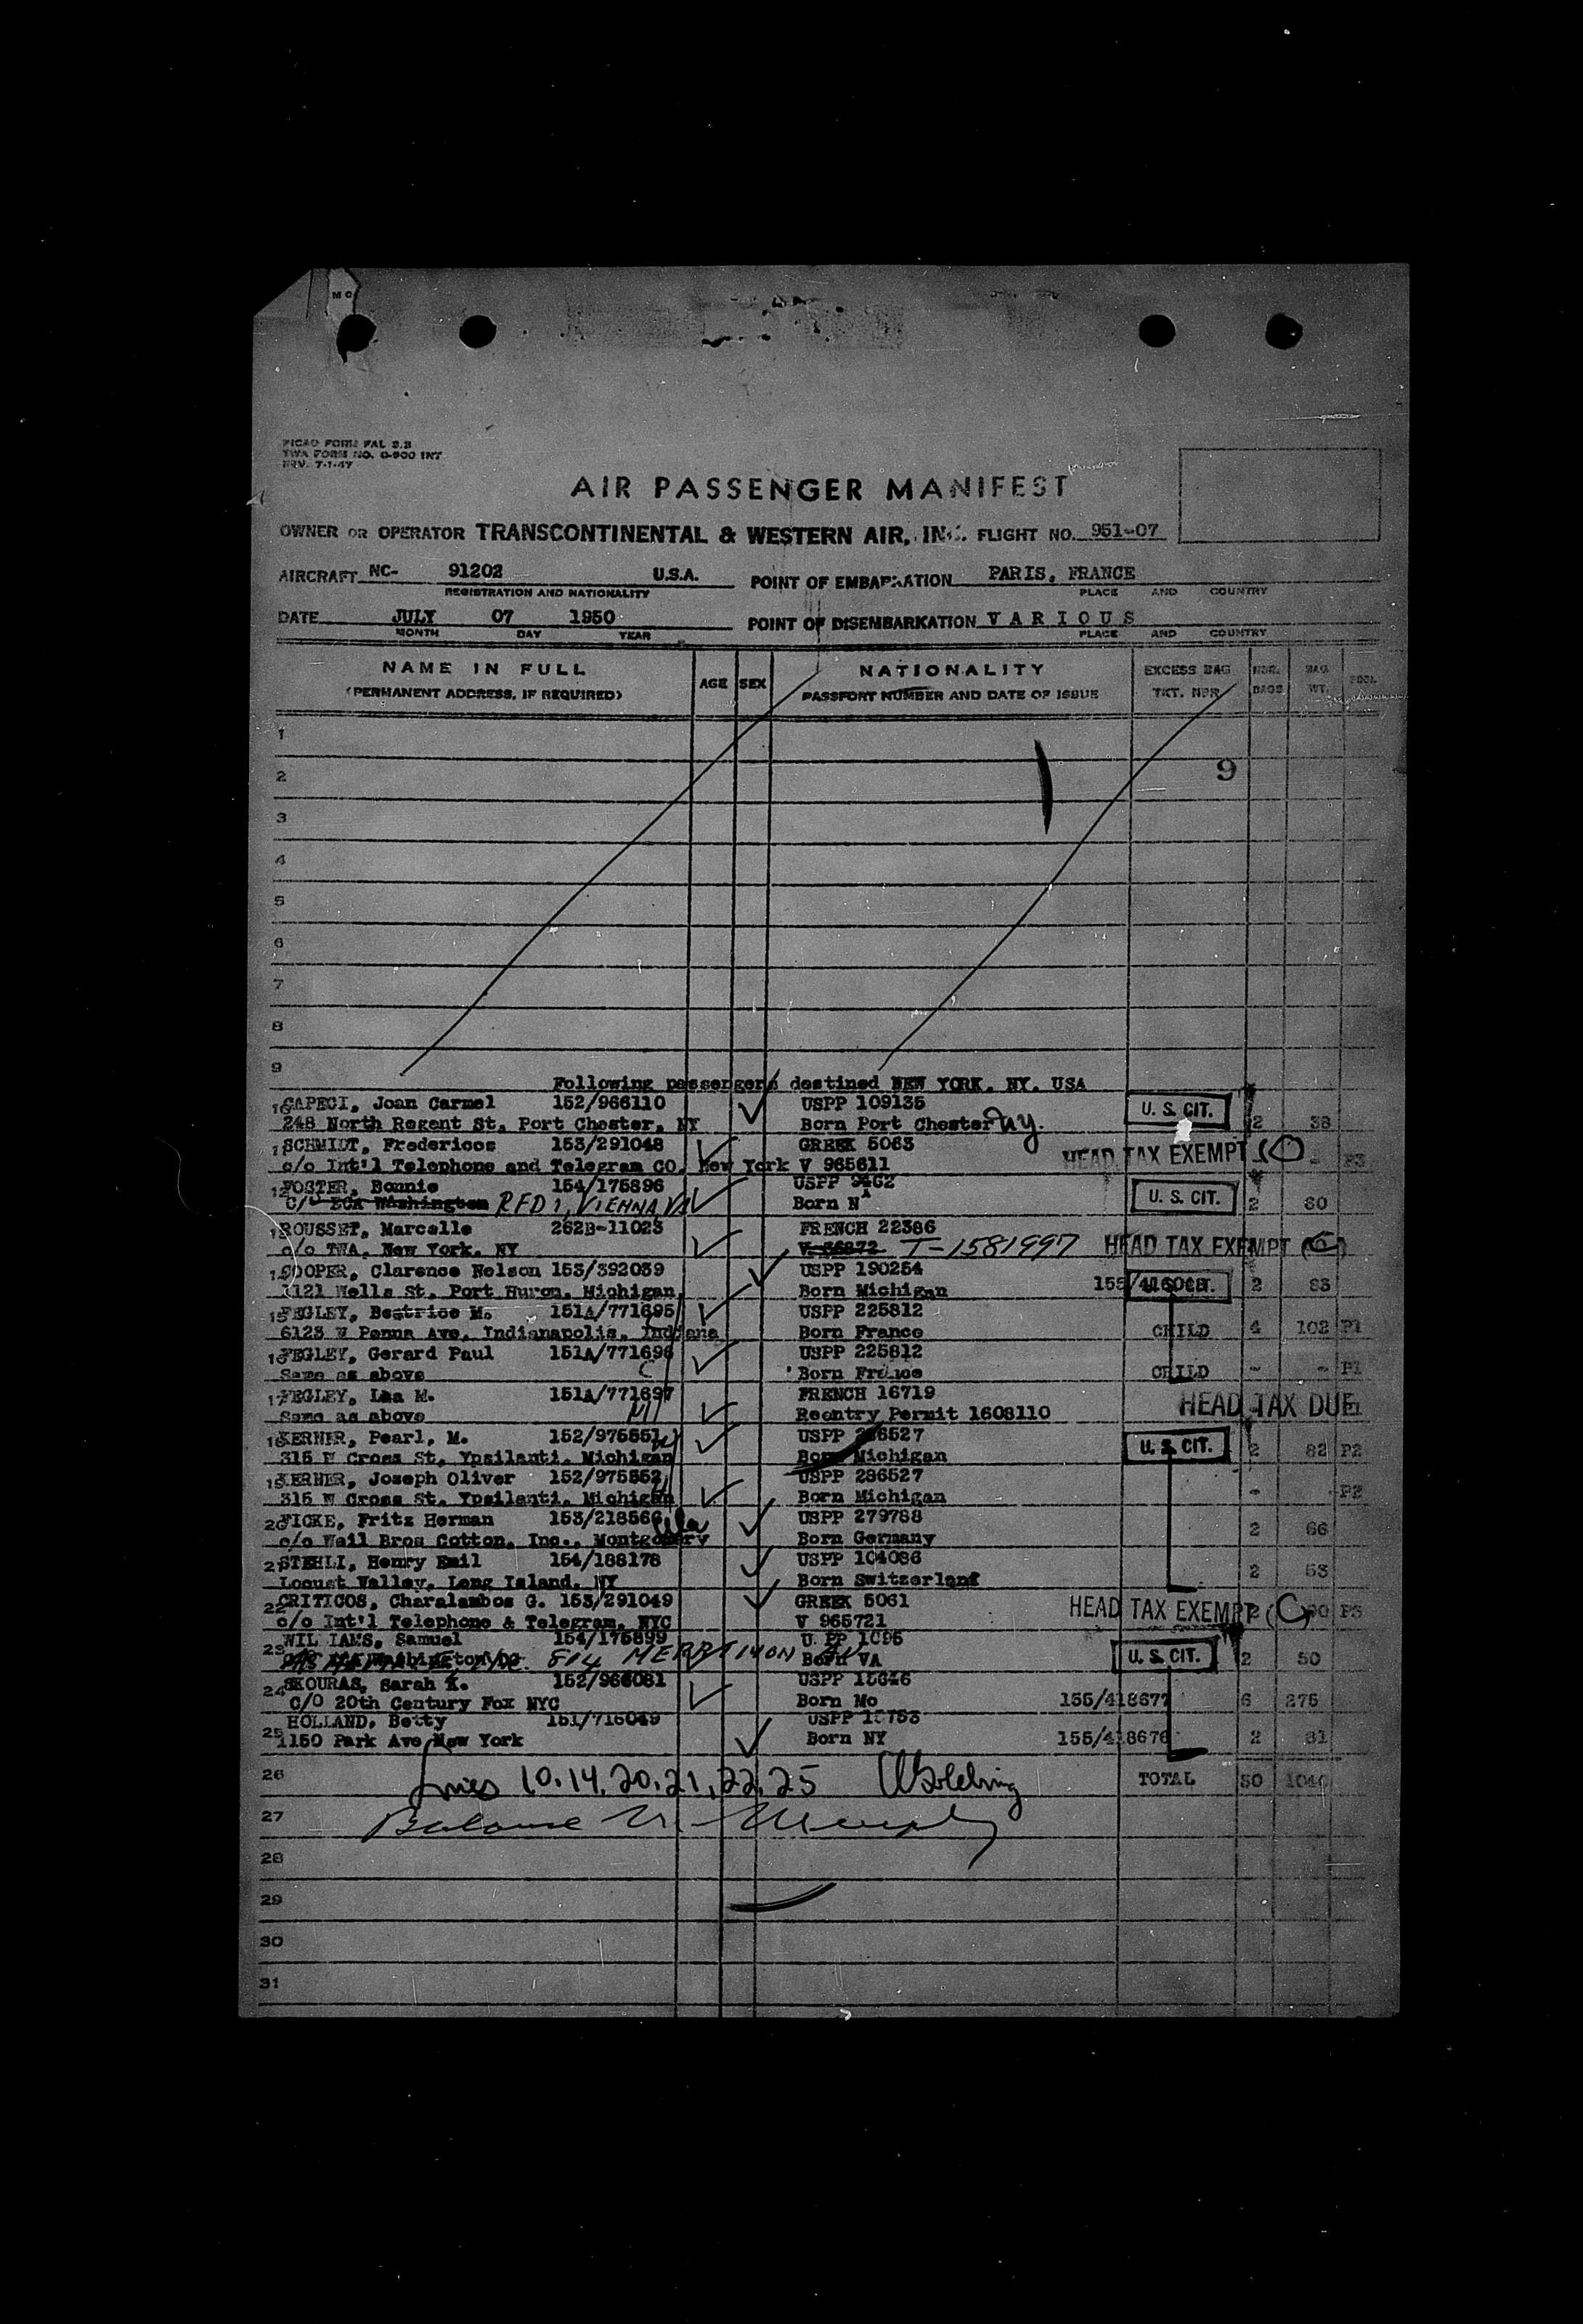 MC
PICAO FORM FAL 2.3
TWA FORM NO. O-900 INT
REV. 7-1-47
AIR PASSENGER MANIFEST
OWNER OR OPERATOR TRANSCONTINENTAL & WESTERN AIR, INC. FLIGHT NO. 951-07
AIRCRAFT NC- 91202 U.S.A. POINT OF EMBARKATION PARIS, FRANCE
REGISTRATION AND NATIONALITY PLACE AND COUNTRY
DATE JULY 07 1950 POINT OF DISEMBARKATION VARIOUS
MONTH DAY YEAR PLACE AND COUNTRY
NAME IN FULL AGE SEX NATIONALITY EXCESS BAG NBR. BAG
(PERMANENT ADDRESS, IF REQUIRED) PASSPORT NUMBER AND DATE OF ISSUE TKT. NBR BAGS WT.
1
2 9
3
4
5
6
7
8
9
Following passengers destined NEW YORK, NY, USA
10 CAPECI, Joan Carmel 152/966110 USPP 109135 U. S. CIT.
248 North Regent St, Port Chester, NY Born Port Chester NY. 2 38
SCHMIDT, Fredericos 153/291048 GREEK 5063 HEAD TAX EXEMPT (C)
c/o Int'l Telephone and Telegram CO, New York V 965611 - P3
12 FOSTER, Bonnie 154/175896 USPP U. S. CIT.
C/O ECA Washington RFD 1, VIENNA VA Born N 2 60
ROUSSET, Marcelle 262B-11023 FRENCH 22386
c/o TWA, New York, NY V-56872 T-1581997 HEAD TAX EXEMPT
COOPER, Clarence Nelson 153/392039 USPP 190254
1121 Wells St, Port Huron, Michigan Born Michigan 2 83
15 FEGLEY, Beatrice M. 151A/771695 USPP 225812
6123 W Penna Ave, Indianapolis, Indiana Born France CHILD 4 102 P1
16 FEGLEY, Gerard Paul 151A/771696 USPP 225812
Same as above Born France CHILD - - P1
17 FEGLEY, Lea M. 151A/771697 FRENCH 16719 HEAD TAX DUE
Same as above Reentry Permit 1608110
18 KERNER, Pearl, M. 152/975551 USPP 286527 U. S. CIT.
315 W Cross St, Ypsilanti, Michigan Born Michigan 2 82 P2
19 KERNER, Joseph Oliver 152/975552 USPP 286527
315 W Cross St, Ypsilanti, Michigan Born Michigan - - P2
20 FICKE, Fritz Herman 153/218566 USPP 279788
c/o Weil Bros Cotton, Inc., Montgomery Ala Born Germany 2 66
2 STEHLI, Henry Emil 154/188178 USPP 104086
Locust Valley, Long Island, NY Born Switzerland 2 53
22 CRITICOS, Charalambos G. 153/291049 GREEK 5061 HEAD TAX EXEMPT (C)
c/o Int'l Telephone & Telegram, NYC V 965721 P3
23 WIL IAMS, Samuel 154/175899 U. PP 1095 U. S. CIT.
Washington DC 814 MERRIMON AV Born VA 2 50
24 SKOURAS, Sarah K. 152/966081 USPP 15646
C/O 20th Century Fox NYC Born Mo 155/418677 6 275
HOLLAND, Betty 151/716049 USPP
25 1150 Park Ave New York Born NY 155/418676 2 31
26 Lines 10.14.20.21.22.25 TOTAL 50
27 Balance Murphy
28
29
30
31